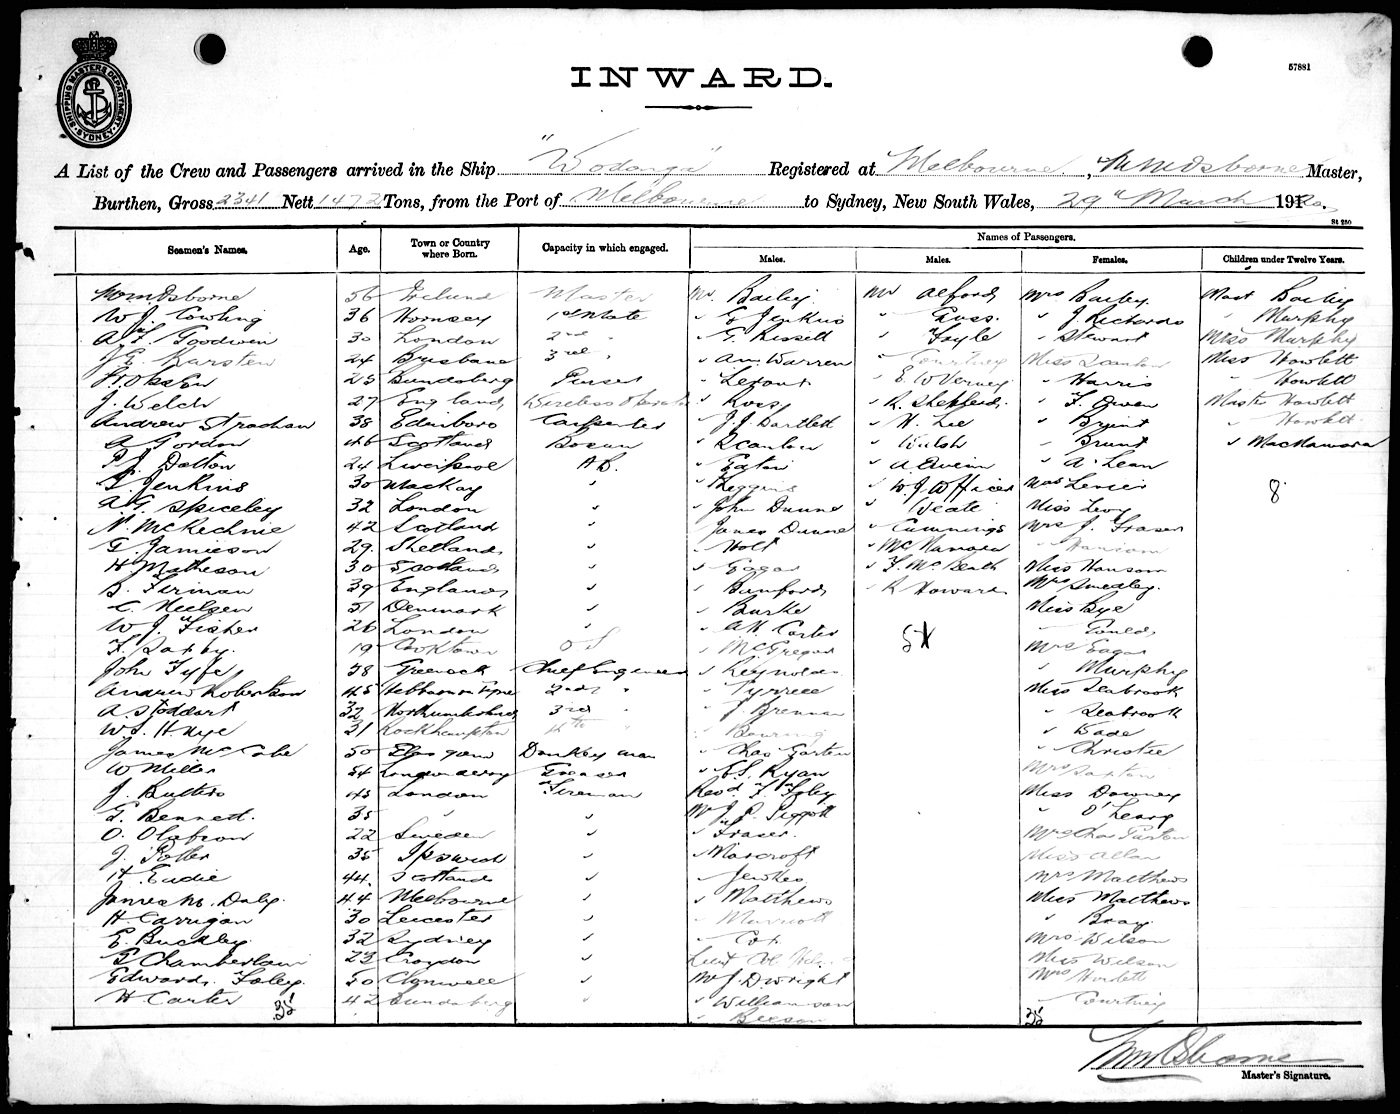 SHIPPING MASTERS DEPARTMENT. SYDNEY
INWARD.
57881
A List of the Crew and Passengers arrived in the Ship "Wodonga" Registered at Melbourne, Wm Osborne Master,
Burthen, Gross 2341 Nett 1472 Tons, from the Port of Melbourne to Sydney, New South Wales, 29th March 191
St 250
Seamen's Names. Age. Town or Country where Born. Capacity in which engaged. Names of Passengers.
Males. Males. Females. Children under Twelve Years.
Wm Osborne 56 Ireland Master Mr. Bailey Mr Alford Mrs Bailey Mast Bailey
W J Cowling 36 Hornsey 1st Mate " E Jenkins " Guss. " J Richards " Murphy
A F Goodwin 30 London 2nd " " G Russell " Foyle " Stewart Miss Murphy
J E Karsten 24 Brisbane 3rd " " Am Warren " Courtney Miss Scanlan Miss Howlett
25 Bundaberg Purser " " E W Verney " Harris " Howlett
J. Welch 27 England Wireless Operator " Ross " R. Shepherd " F. Owen Master Howlett
Andrew Strachan 38 Edinboro Carpenter " J.J. Bartlett " H. Lee " Bryant " Howlett
A Gordon 46 Scotland Bosun " Scanlan " Walsh " Brunt " MacNamara
P J Dalton 24 Liverpool AB. " Eaton " A Quinn " A. Lean
E Jenkins 30 Mackay " " Higgins " W.J. Officer Mrs 8
A G Spiceley 32 London " " John Dunne " Miss Levy
N. McKechnie 42 Scotland " James Dunne " Cummings Mrs J. Fraser
G. Jamieson 29 Shetland " " Holt " " Hansom
H Matheson 30 Scotland " " Eagar " F. McBeath Miss Hansom
B. Firman 39 England " " Bamford " R Howard Mrs Smedley
C. Nielsen 51 Denmark " " Burke Miss Bye
W J. Fisher 26 London " " A H. Carter " Gould
19 Cooktown O.S " McGregor Mrs Eagar
John Fyfe 58 Greenock Chief Engineer " Reynolds " Murphy
Andrew Robertson 45 Hebburn on Tyne 2nd " " Tyrrell Miss Seabrook
A. Stoddart 32 Northumberland 3rd " " J. Brennan " Seabrook
31 Rockhampton 4th " " " Wade
James McCabe 50 Glasgow Donkey man " Chas Garton " Christie
W Miller 54 Londonderry Greaser " E.S. Ryan Mrs
J. Butters 45 London Fireman Revd F. Foley Miss Downey
G. Bennett. 35 " " Mr J. P. Piggott " O'Leary
O. Olafson 22 Sweden " " Fraser. Mrs Chas
J. Potter 35 Ipswich " " Marcroft Miss Allan
H. Eadie 44. Scotland " " Mrs Matthews
James M. Daly 44 Melbourne " " Matthews Miss Matthews
H. Carrigan 30 Leicester " " Marriott " Bray
E. Buckley 32 Sydney " " Cox Mrs Wilson
G Chamberlain 23 Croydon " Lieut Col Miss Wilson
Edward Foley 50 " Mr J. Dwright Mrs Howlett
H Carter 42 Bundaberg " " Williamson " Courtney
35 " Beeson 35
Wm Osborne
Master's Signature.